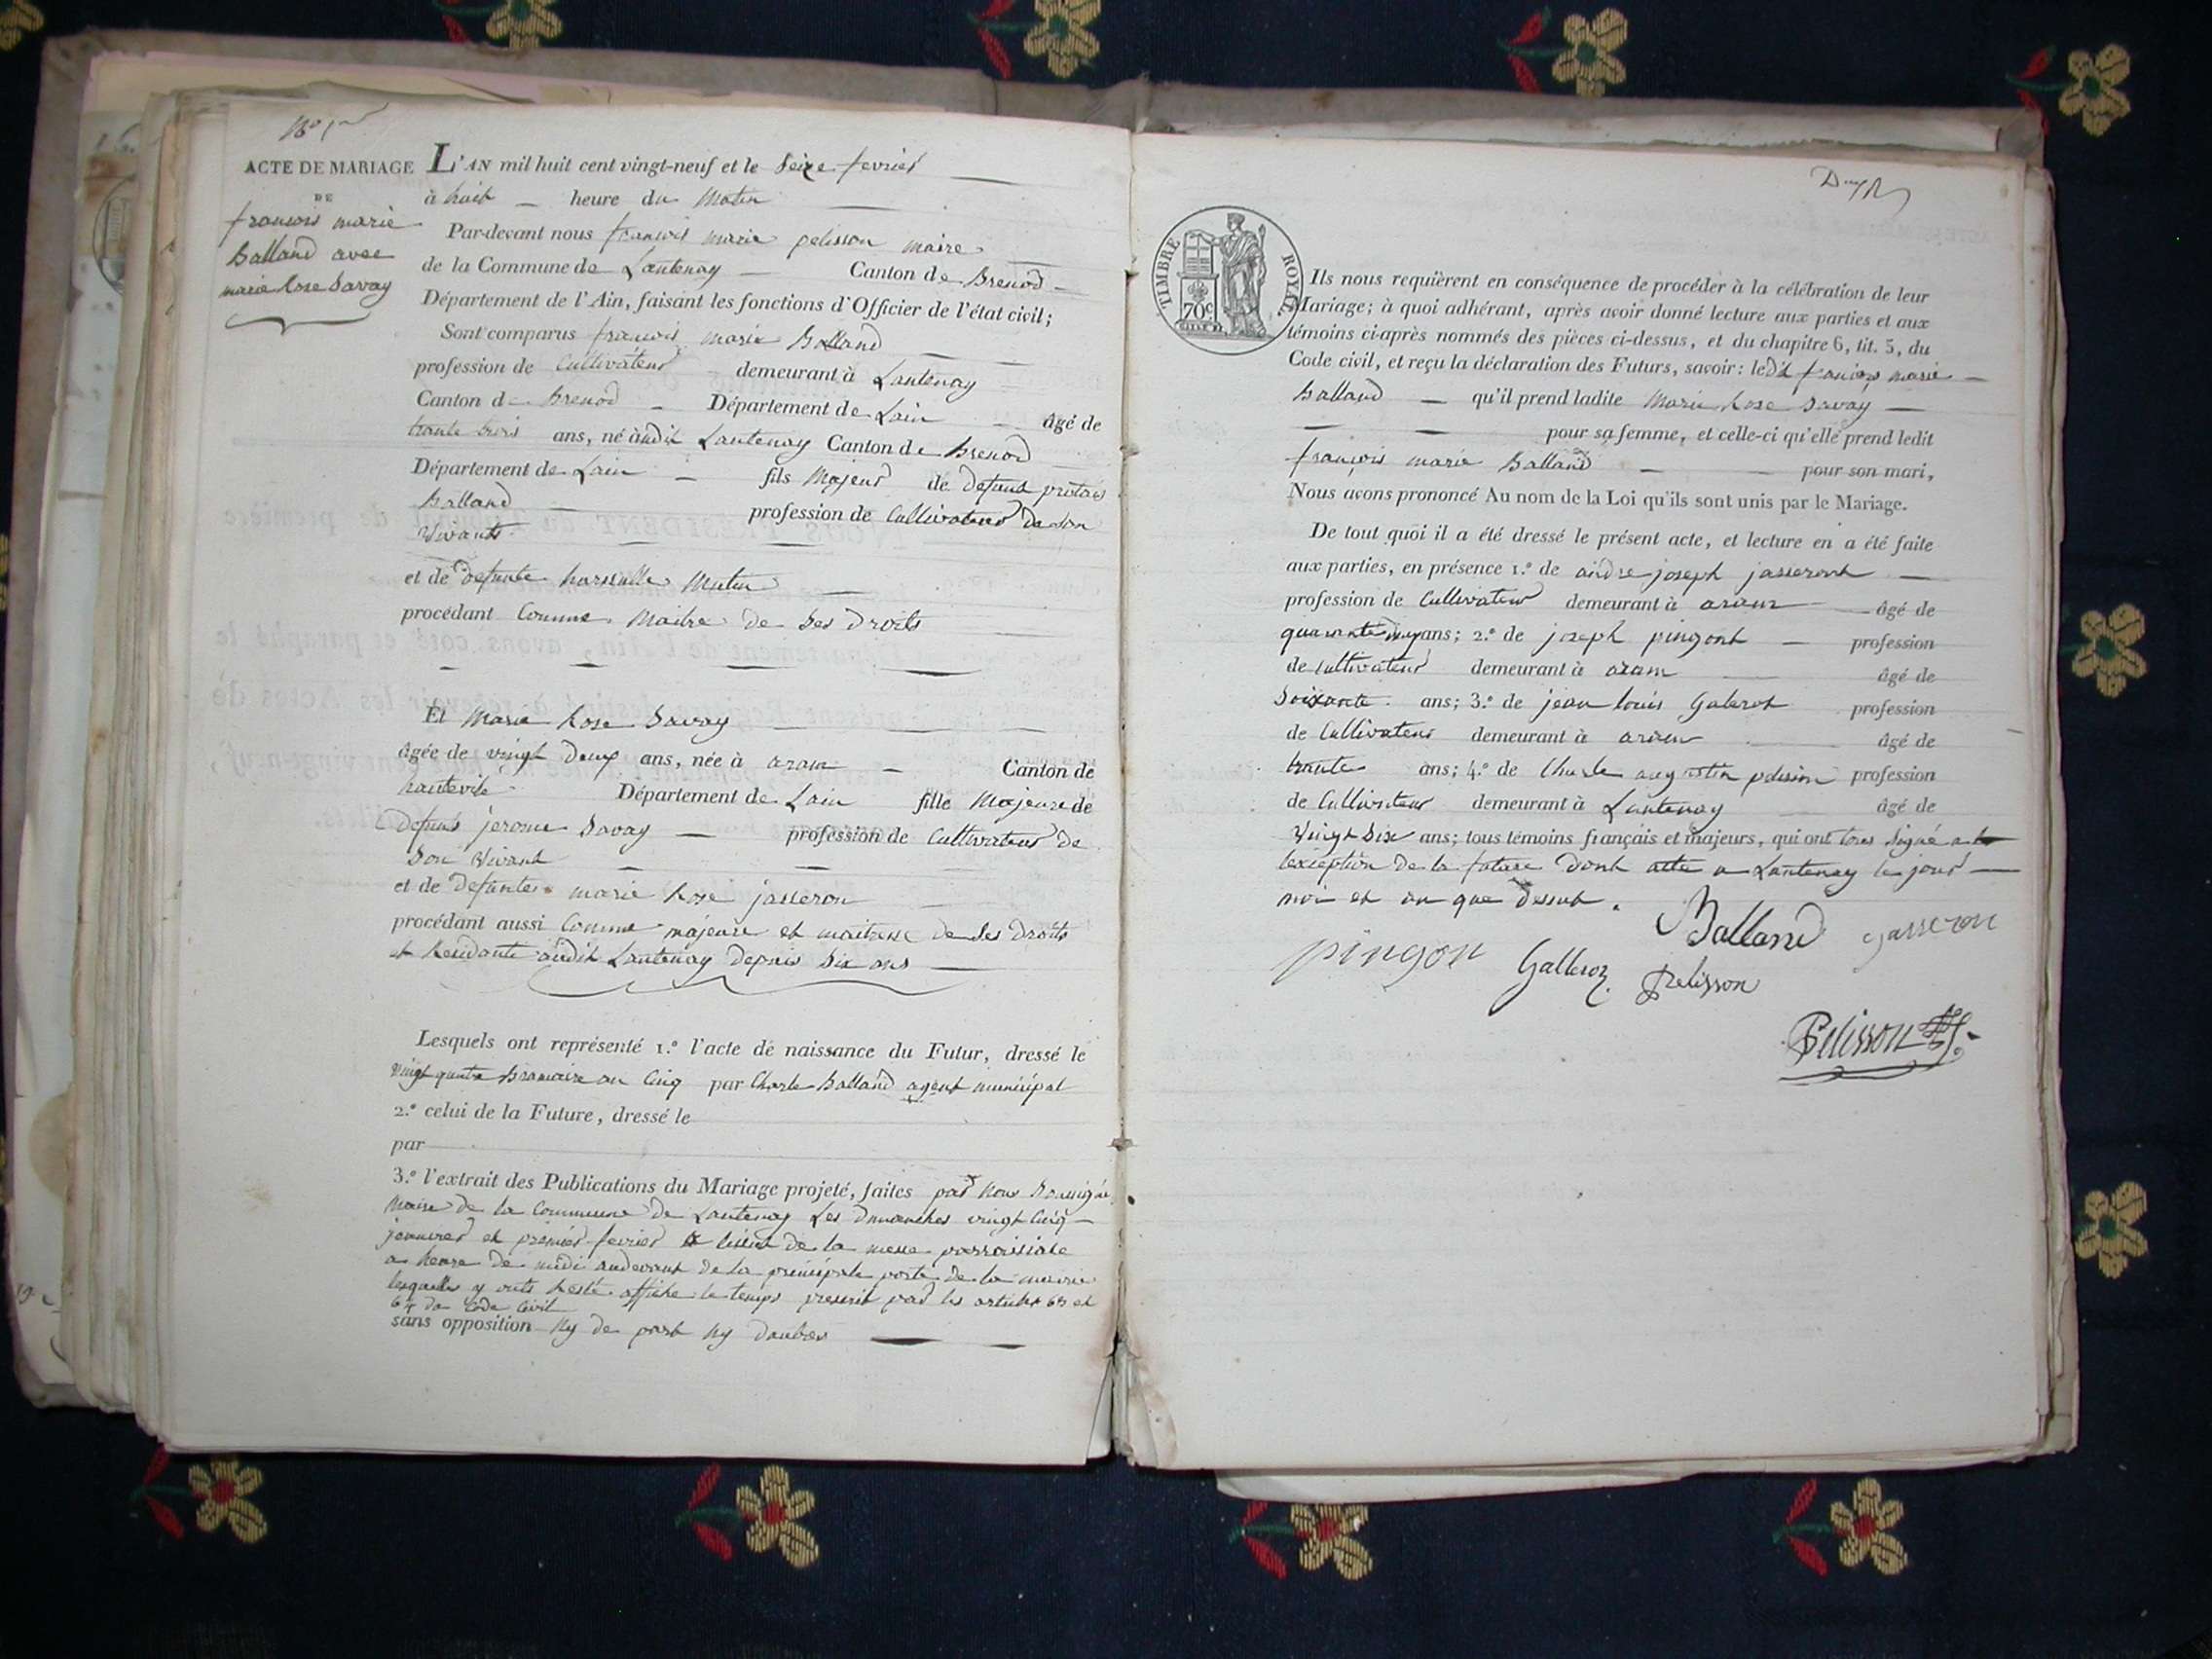 N° 1er
ACTE DE MARIAGE
DE
francois marie
Balland avec
marie Rose Savay
L'AN mil huit cent vingt-neuf et le Seize fevrier
à huit heure du Matin
Par-devant nous francois marie pelisson maire
de la Commune de Lantenay Canton de Brenod
Département de l'Ain, faisant les fonctions d'Officier de l'état civil;
Sont comparus francois marie Balland
profession de Cultivateur demeurant à Lantenay
Canton de Brenod Département de Lain âgé de
trante trois ans, né àudit Lantenay Canton de Brenod
Département de Lain fils Majeur de defunt protais
Balland profession de Cultivateur de son
Vivant
et de defunte Mutin
procédant Comme Maitre de Ses Droits
Et Marie Rose Savay
âgée de vingt deux ans, née à aram Canton de
hautevile Département de Lain fille Majeure de
Defunt jerome Savay profession de Cultivateur de
Son Vivant
et de Defunte marie Rose jasseron
procédant aussi Comme majeure et maitresse de Ses Droits
et Residante audit Lantenay depuis Six ans
Lesquels ont représenté 1.° l'acte de naissance du Futur, dressé le
vingt quatre Bramaire an Cinq par Charle Balland agent municipal
2.° celui de la Future, dressé le
par
3.° l'extrait des Publications du Mariage projeté, faites par Nous Soussigné
Maire de la Commune de Lantenay Les Dimanches vingt Cinq
janvier et premier fevrier a lissue de la messe parroissiale
a heure de midi audevant de la principale porte de la mairie
lesquelles y onts Resté affiche le temps prescrit par les articles 63 et
64 du Code Civil
sans opposition Ny de part Ny Dautres
TIMBRE ROYAL
70c
Ils nous requièrent en conséquence de procéder à la célébration de leur
Mariage; à quoi adhérant, après avoir donné lecture aux parties et aux
témoins ci-après nommés des pièces ci-dessus, et du chapitre 6, tit. 5, du
Code civil, et reçu la déclaration des Futurs, savoir: ledit francois marie
Balland qu'il prend ladite Marie Rose Savay
pour sa femme, et celle-ci qu'elle prend ledit
françois marie Balland pour son mari,
Nous avons prononcé Au nom de la Loi qu'ils sont unis par le Mariage.
De tout quoi il a été dressé le présent acte, et lecture en a été faite
aux parties, en présence 1.° de andre joseph jasseront
profession de Cultivateur demeurant à aram âgé de
quarante ans; 2.° de joseph pingont profession
de cultivateur demeurant à aram âgé de
Soixante ans; 3.° de jean louis Galerot profession
de Cultivateur demeurant à aram âgé de
trante ans; 4.° de Charle augustin pelision profession
de Cultivateur demeurant à Lantenay âgé de
Vingt Six ans; tous témoins français et majeurs, qui ont tous Signé a
lexception de la future Dont acte a Lantenay le jour
moi et an que Dessut.
Balland jasseron
pingon Galleroz Pelisson
Pelisson